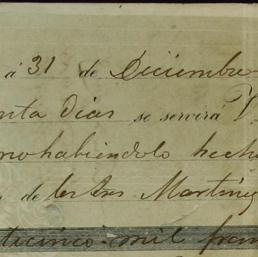 á 31 de Diciembre
nta dias se servirá V
no habiendolo hech
de los Sres Martinez
ticinco mil fran